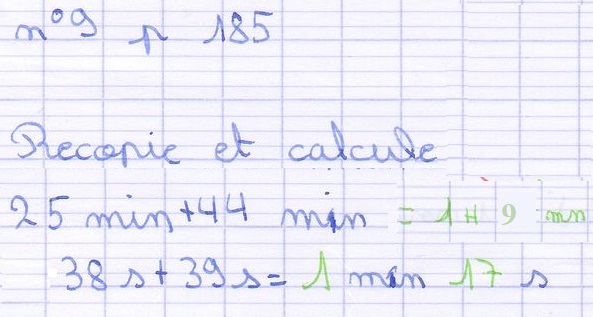 n°9 p 185
Recopie et calcule
25 min+44 min = 1H 9 mn
38 s+39s= 1 min 17 s